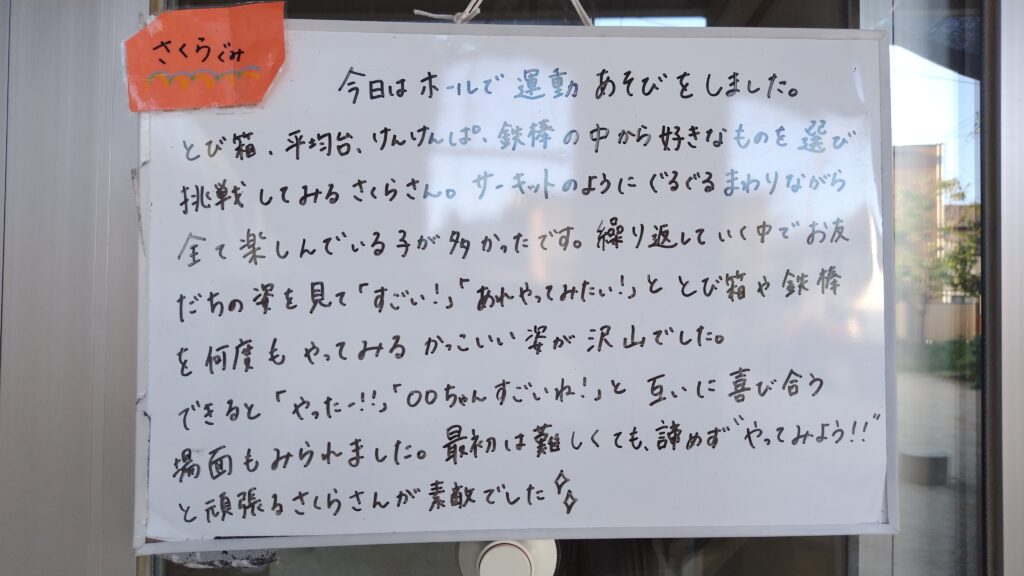 さくらぐみ
今日はホールで運動あそびをしました。
とび箱、平均台、けんけんぱ、鉄棒の中から好きなものを選び
挑戦してみるさくらさん。サーキットのようにぐるぐるまわりながら
全て楽しんでいる子が多かったです。繰り返していく中でお友
だちの姿を見て「すごい!」「あれやってみたい!」ととび箱や鉄棒
を何度もやってみるかっこいい姿が沢山でした。
できると「やったー!!」「〇〇ちゃんすごいね!」と互いに喜び合う
場面もみられました。最初は難しくても、諦めず"やってみよう!!"
と頑張るさくらさんが素敵でした